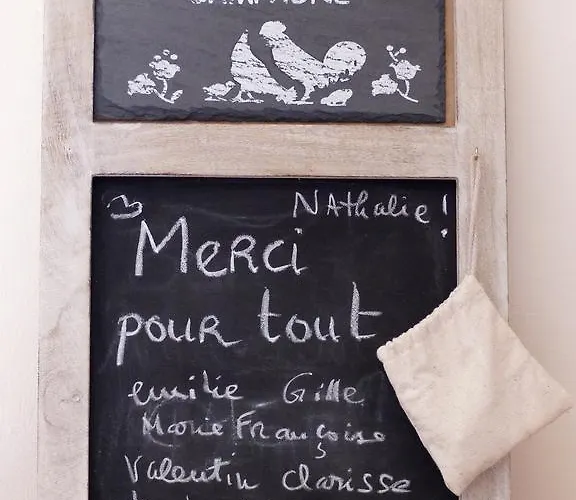 Nathalie !
Merci
pour tout
emilie Gille
Marie Françoise
Valentin clarisse